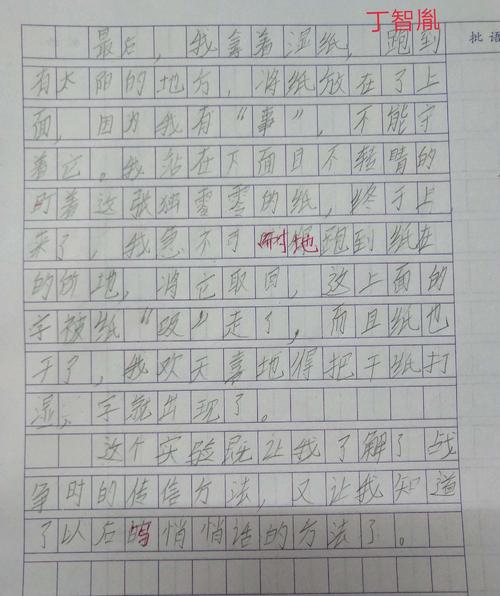 丁智胤
批语
最后，我拿着湿纸，跑到
有太阳的地方，将纸放在了上
面，因为我有“事”，不能守
着它。我站在下面目不转睛的
盯着这张独零零的纸，终于上
来了，我急不可耐地跑到纸在
的的地，将它取回，这上面的
字被纸“吸”走了，而且纸也
干了，我欢天喜地得把干纸打
湿，字就出现了。
这个实验既让我了解了战
争时的传信方法，又让我知道
了以后的悄悄话的方法了。